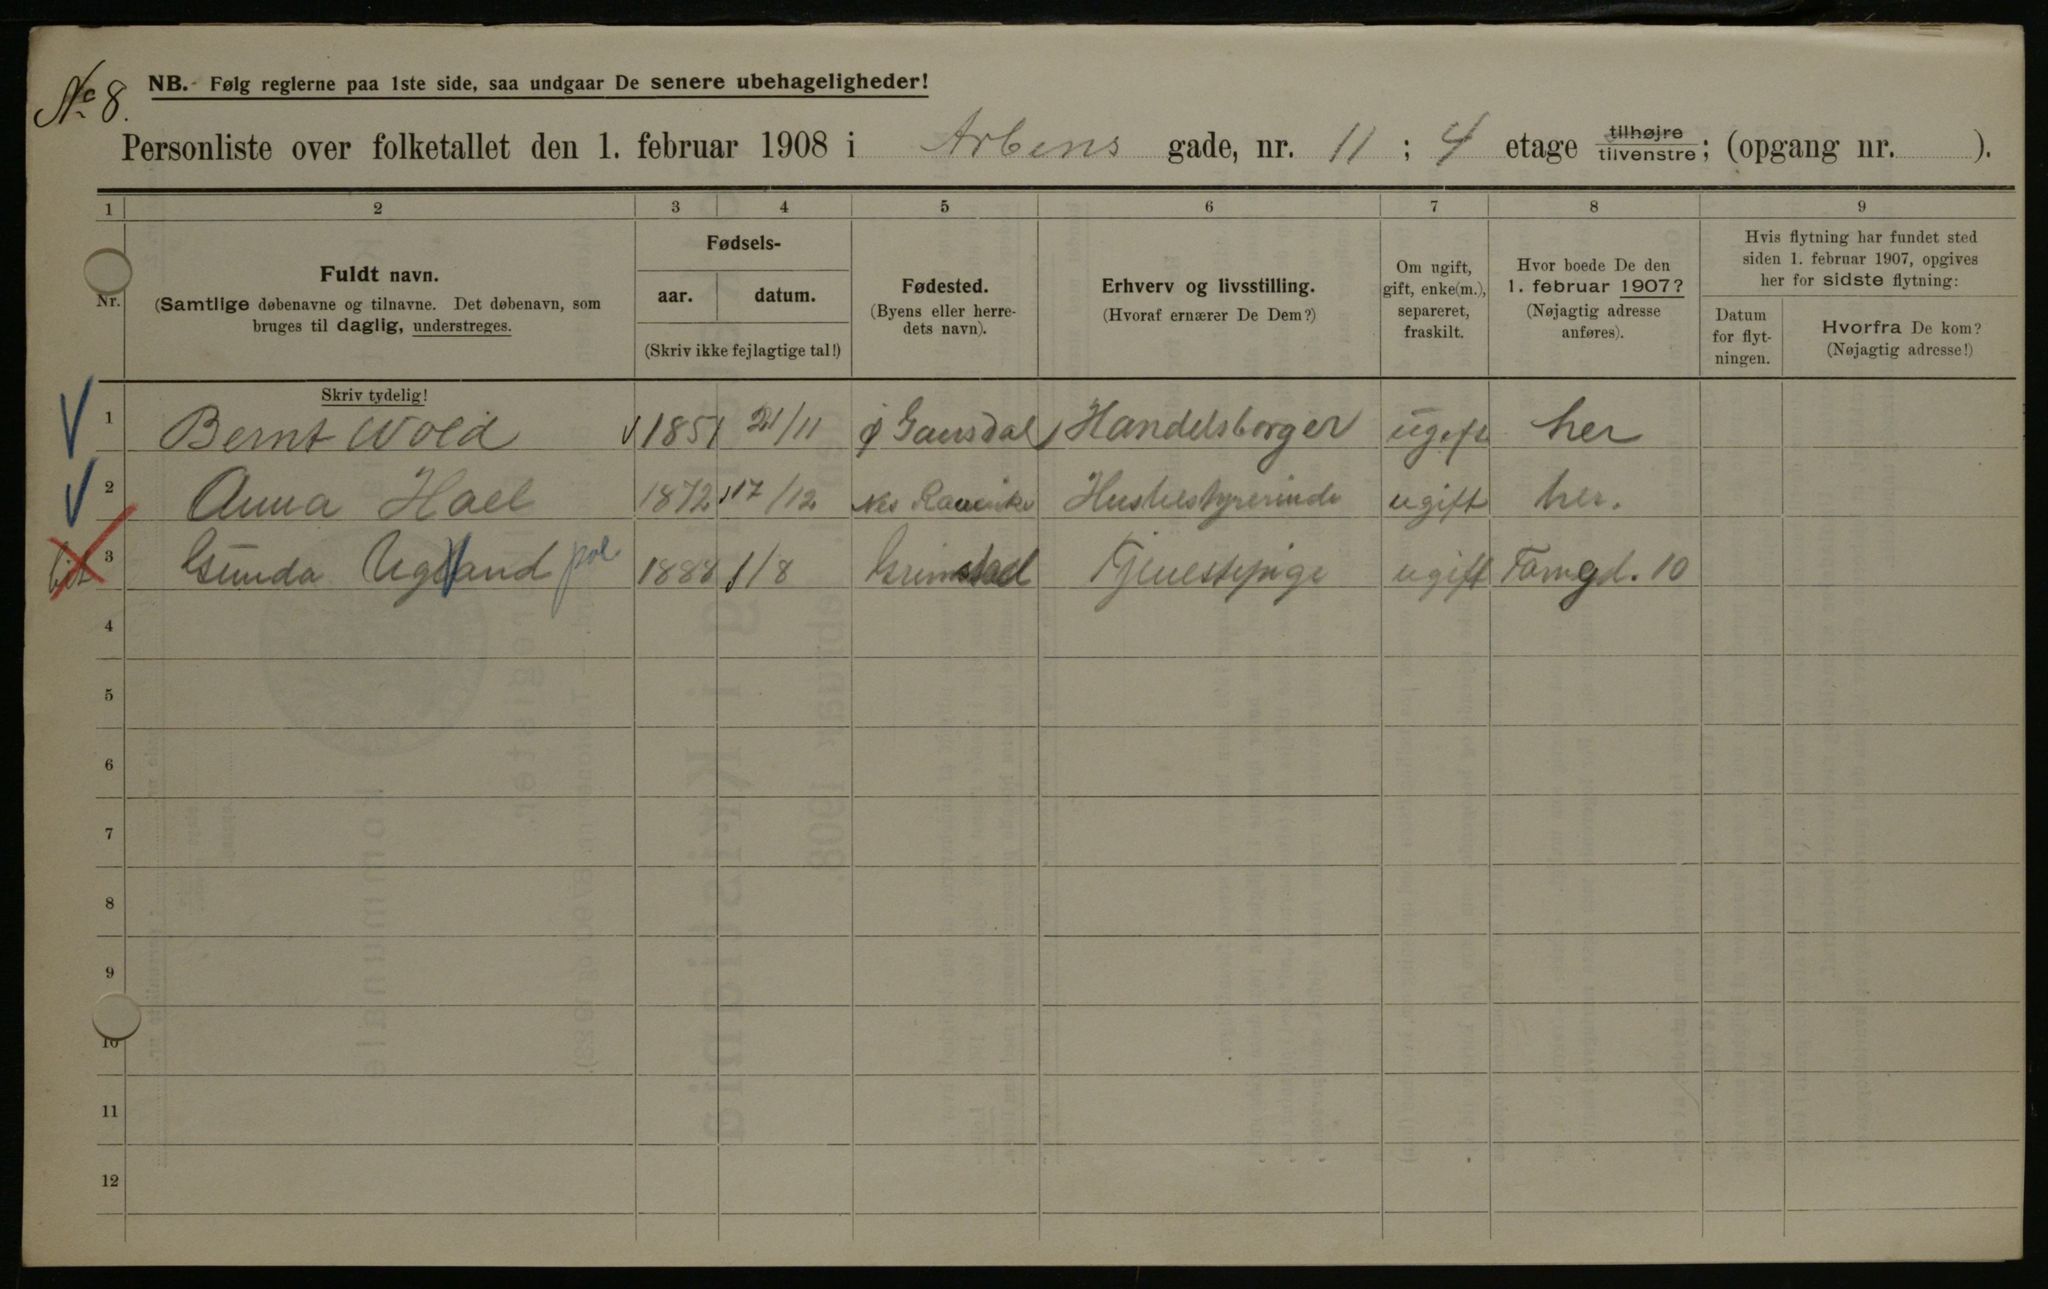 No 8.
NB. Følg reglerne paa 1ste side, saa undgaar De senere ubehageligheder!
Personliste over folketallet den 1. februar 1908 i Arbens gade, nr. 11 ; 4 etage tilhøjre tilvenstre; (opgang nr. ).
1 2 3 4 5 6 7 8 9
Nr.
Fuldt navn.
(Samtlige døbenavne og tilnavne. Det døbenavn, som
bruges til daglig, understreges.
Skriv tydelig!
Fødsels-
aar. datum.
(Skriv ikke fejlagtige tal!)
Fødested.
(Byens eller herre-
dets navn).
Erhverv og livsstilling.
(Hvoraf ernærer De Dem?)
Om ugift,
gift, enke(m.),
separeret,
fraskilt.
Hvor boede De den
1. februar 1907?
(Nøjagtig adresse
anføres).
Hvis flytning har fundet sted
siden 1. februar 1907, opgives
her for sidste flytning:
Datum
for flyt-
ningen.
Hvorfra De kom?
(Nøjagtig adresse!)
1 Bernt Wold 1851 21/11 Ø Gausdal Handelsborger ugift her
2 Anna Hael 1872 17/12 Nes Husbestyrerinde ugift her.
3 Gunda Ugland pol 1888 1/8 Grimstad Tjenestepige ugift 10
4
5
6
7
8
9
10
11
12